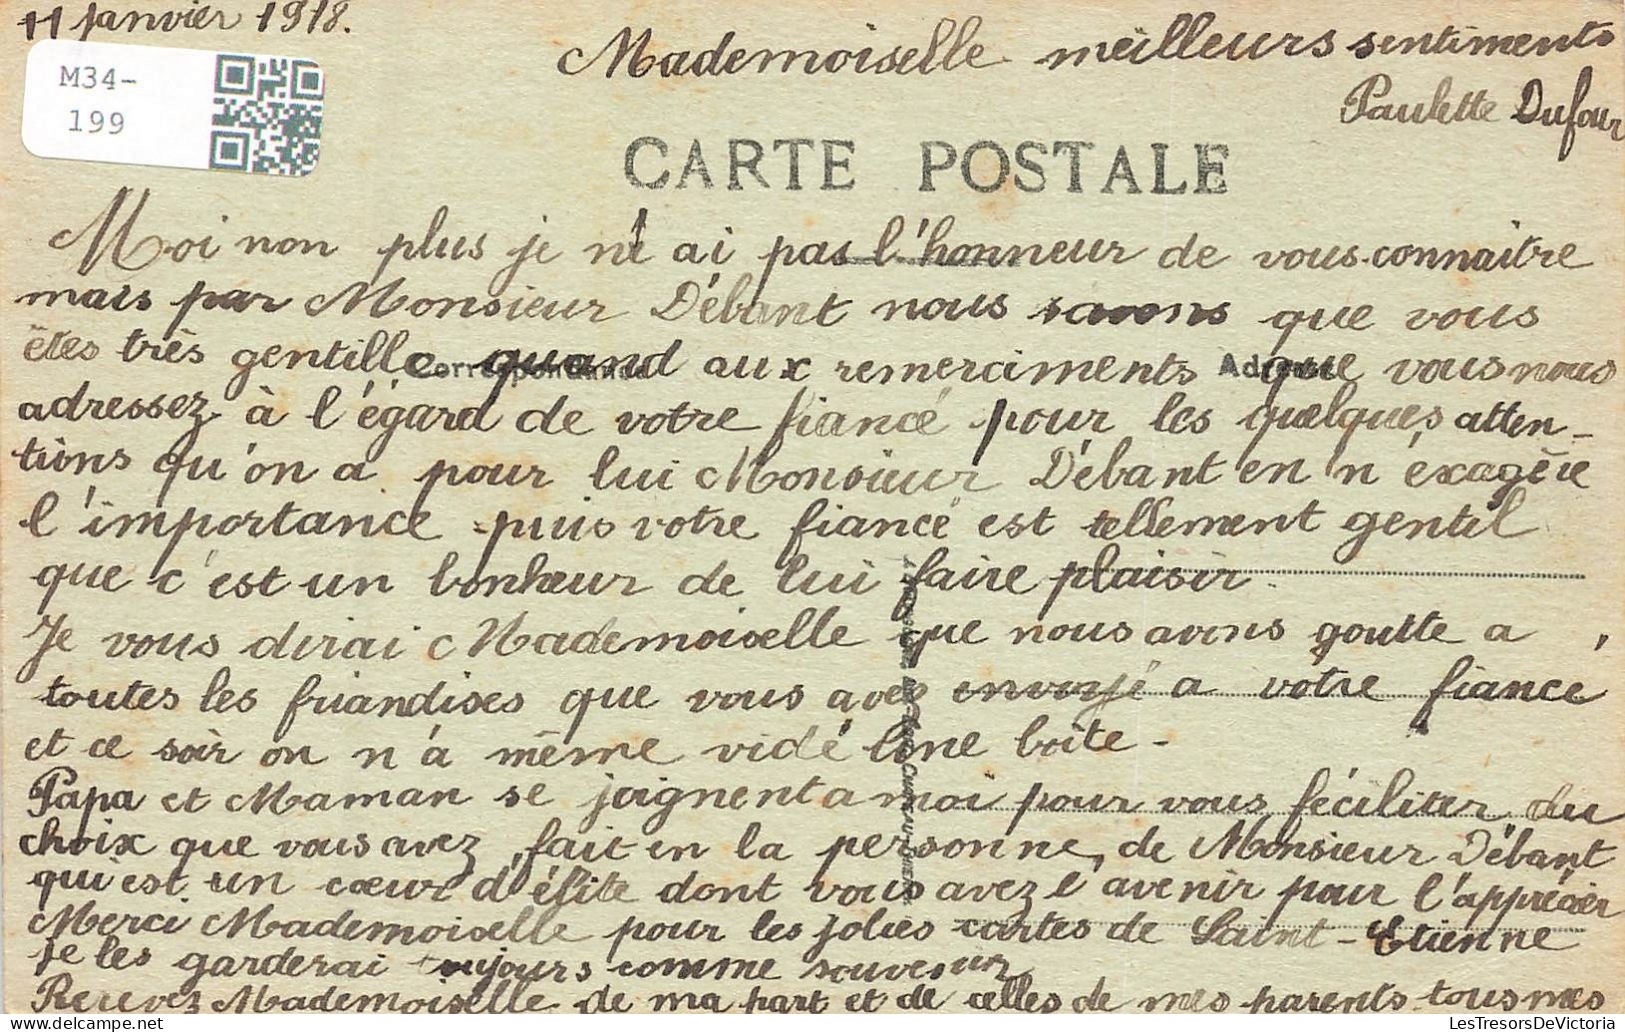 11 janvier 1918.
M34-
199
Mademoiselle meilleurs sentiments
Paulette Dufour
CARTE POSTALE
Moi non plus je n'ai pas l'honneur de vous connaitre
mais par Monsieur Débant nous savons que vous
êtes très gentille quand aux remerciments que vous nous
Correspondance
Adresse
adressez à l'égard de votre fiancé pour les quelques atten-
tions qu'on a pour lui Monsieur Débant en n'éxagère
l'importance puis votre fiancé est tellement gentil
que c'est un bonheur de lui faire plaisir.
Je vous dirai Mademoiselle que nous avons goutte a
toutes les friandises que vous avez envoyé a vôtre fiance
et ce soir on n'a même vidé une boite -
Papa et Maman se joignent a moi pour vous féciliter du
choix que vous avez fait en la personne de Monsieur Débant
qui est un cœur d'élite dont vous avez l'avenir pour l'apprécier
Merci Mademoiselle pour les jolies cartes de Saint-Etienne
je les garderai toujours comme souvenir
Recevez Mademoiselle de ma part et de celles de mes parents tous mes
LesTresorsDeVictoria.com